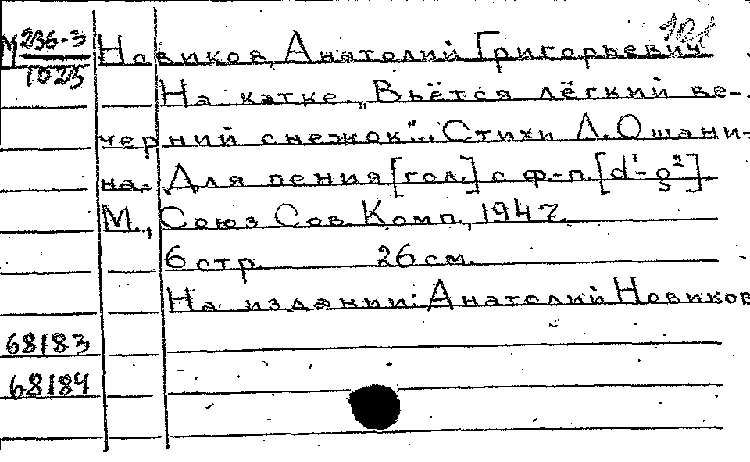 М 236-3
1025
Новиков, Анатолий Григорьевич
На катке „Вьётся лёгкий ве-
черний снежок"... Стихи Л. Ошани-
на. Для пения [гол.] с ф.-п. [d¹-g²]
М., Союз Сов. Комп., 1947.
6 стр. 26 см.
На издании: Анатолий Новиков
68183
68184